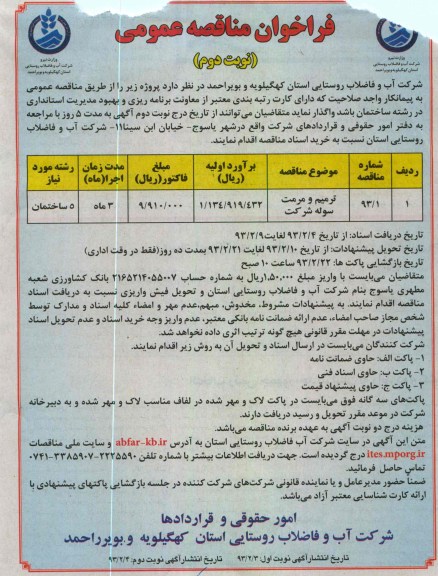 فراخوان مناقصه عمومی
(نوبت دوم)
شرکت آب و فاضلاب روستایی استان کهگیلویه و بویراحمد در نظر دارد پروژه زیر را از طریق مناقصه عمومی
به پیمانکار واجد صلاحیت که دارای کارت رتبه بندی معتبر از معاونت برنامه ریزی و بهبود مدیریت استانداری
در رشته ساختمان باشد واگذار نماید متقاضیان می‌توانند از تاریخ درج نوبت دوم آگهی به مدت ۵ روز با مراجعه
به دفتر امور حقوقی و قراردادهای شرکت واقع درشهر یاسوج- خیابان ابن سینا۱۱- شرکت آب و فاضلاب
روستایی استان نسبت به خرید اسناد مناقصه اقدام نمایند.
ردیف شماره مناقصه موضوع مناقصه برآورد اولیه (ریال) مبلغ فاکتور(ریال) مدت زمان اجرا(ماه) رشته مورد نیاز
۱ ۹۳/۱ ترمیم و مرمت سوله شرکت ۱/۱۳۴/۹۱۹/۴۳۲ ۹/۹۱۰/۰۰۰ ۳ ماه ۵ ساختمان
تاریخ دریافت اسناد: از تاریخ ۹۳/۲/۴ لغایت۹۳/۲/۹
تاریخ تحویل پیشنهادات: از تاریخ ۹۳/۲/۱۰ لغایت ۹۳/۲/۲۱ بمدت ده روز(فقط در وقت اداری)
تاریخ بازگشایی پاکت ها: ۹۳/۲/۲۲ ساعت ۱۰ صبح
متقاضیان می‌بایست با واریز مبلغ ۱۵۰,۰۰۰ریال به شماره حساب ۲۱۶۵۲۱۴۰۵۵۰۰۷ بانک کشاورزی شعبه
مطهری یاسوج بنام شرکت آب و فاضلاب روستایی استان و تحویل فیش واریزی نسبت به دریافت اسناد
مناقصه اقدام نمایند. به پیشنهادات مشروط، مخدوش، مبهم،عدم مهر و امضاء کلیه اسناد و مدارک توسط
شخص مجاز صاحب امضاء، عدم ارائه ضمانت نامه بانکی معتبر، عدم واریز وجه خرید اسناد و عدم تحویل اسناد
پیشنهادات در مهلت مقرر قانونی هیچ گونه ترتیب اثری داده نخواهد شد.
شرکت کنندگان می‌بایست در ارسال اسناد و تحویل آن به روش زیر اقدام نمایند.
۱- پاکت الف: حاوی ضمانت نامه
۲- پاکت ب: حاوی اسناد فنی
۳- پاکت ج: حاوی پیشنهاد قیمت
پاکت‌های سه گانه فوق می‌بایست در پاکت لاک و مهر شده در لفاف مناسب لاک و مهر شده و به دبیرخانه
شرکت در موعد مقرر تحویل و رسید دریافت دارند.
هزینه درج دو نوبت آگهی به عهده برنده مناقصه می‌باشد.
متن این آگهی در سایت شرکت آب و فاضلاب روستایی استان به آدرس abfar-kb.ir و سایت ملی مناقصات
ites.mporg.ir درج گردیده است. جهت دریافت اطلاعات بیشتر با شماره تلفن ۲۲۲۵۵۹۰-۳۳۸۵۹۰۷-۰۷۴۱
تماس حاصل فرمائید.
ضمناً حضور مدیرعامل و یا نماینده قانونی شرکت‌های شرکت کننده در جلسه بازگشایی پاکتهای پیشنهادی با
ارائه کارت شناسایی معتبر آزاد می‌باشد.
امور حقوقی و قراردادها
شرکت آب و فاضلاب روستایی استان کهگیلویه و بویرراحمد
تاریخ انتشارآگهی نوبت اول: ۹۳/۲/۳ تاریخ انتشارآگهی نوبت دوم: ۹۳/۲/۴